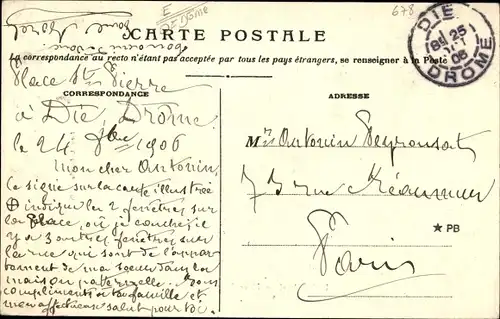 E
Drôme
678
CARTE POSTALE
La correspondance au recto n'étant pas acceptée par tous les pays étrangers, se renseigner à la Poste
DIE
25
06
DROME
Place St Pierre
CORRESPONDANCE
ADRESSE
à Die, Drôme
le 24 8bre 1906
Mon cher Antonin,
Ce signe sur la carte illustrée
⊕ indique les 2 fenêtres sur
la Place, où je couche; il
y a 3 autres fenêtres sur
la rue qui sont de l'appar
tement de ma soeur dans la
maison paternelle.
compliments à ta famille et
mon affectueux salut pour toi.
Mr Antonin Peyronsat
73 rue Réaumur
★ PB
Paris